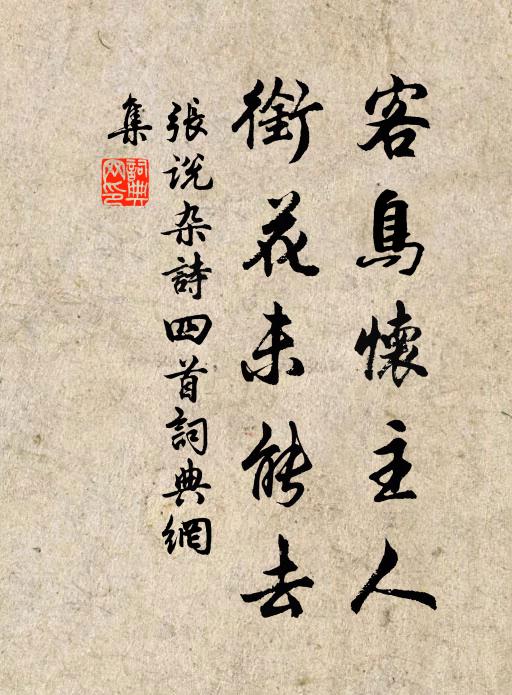 客鳥懷主人
銜花未能去
張說杂詩四首詞典網
集
詞典網印